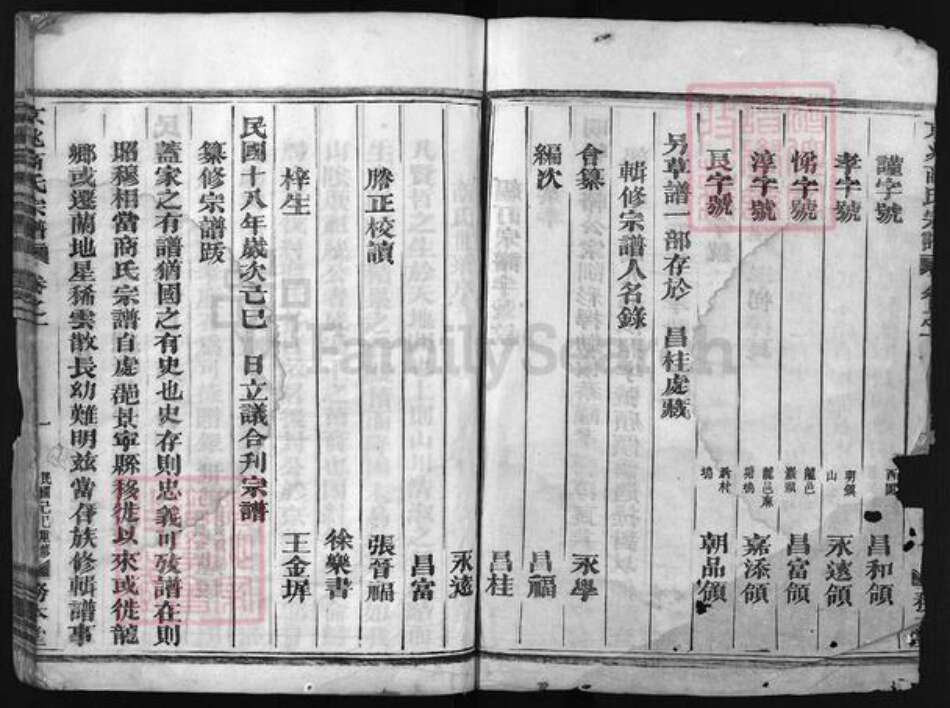 謹字號 昌和領
孝字號 永遠領
悌字號 龍邑 昌富領
淳字號 嘉添領
良字號 朝品領
另草譜一部存於 昌桂處藏
輯修宗譜人名錄
合纂 永學
編次 昌福
昌桂
永遠
昌富
謄正校讀 張晉福
徐樂書
梓生 王金墀
民國十八年歲次己巳 日立議合刊宗譜
纂修宗譜跋
蓋家之有譜猶國之有史也史存則忠義可稽譜在則
昭穆相當商氏宗譜自處郡景寧縣移徙以來或徙龍
鄉或遷蘭地星稀雲散長幼難明茲當合族修輯譜事
京兆商氏宗譜 卷之一
一
FamilySearch